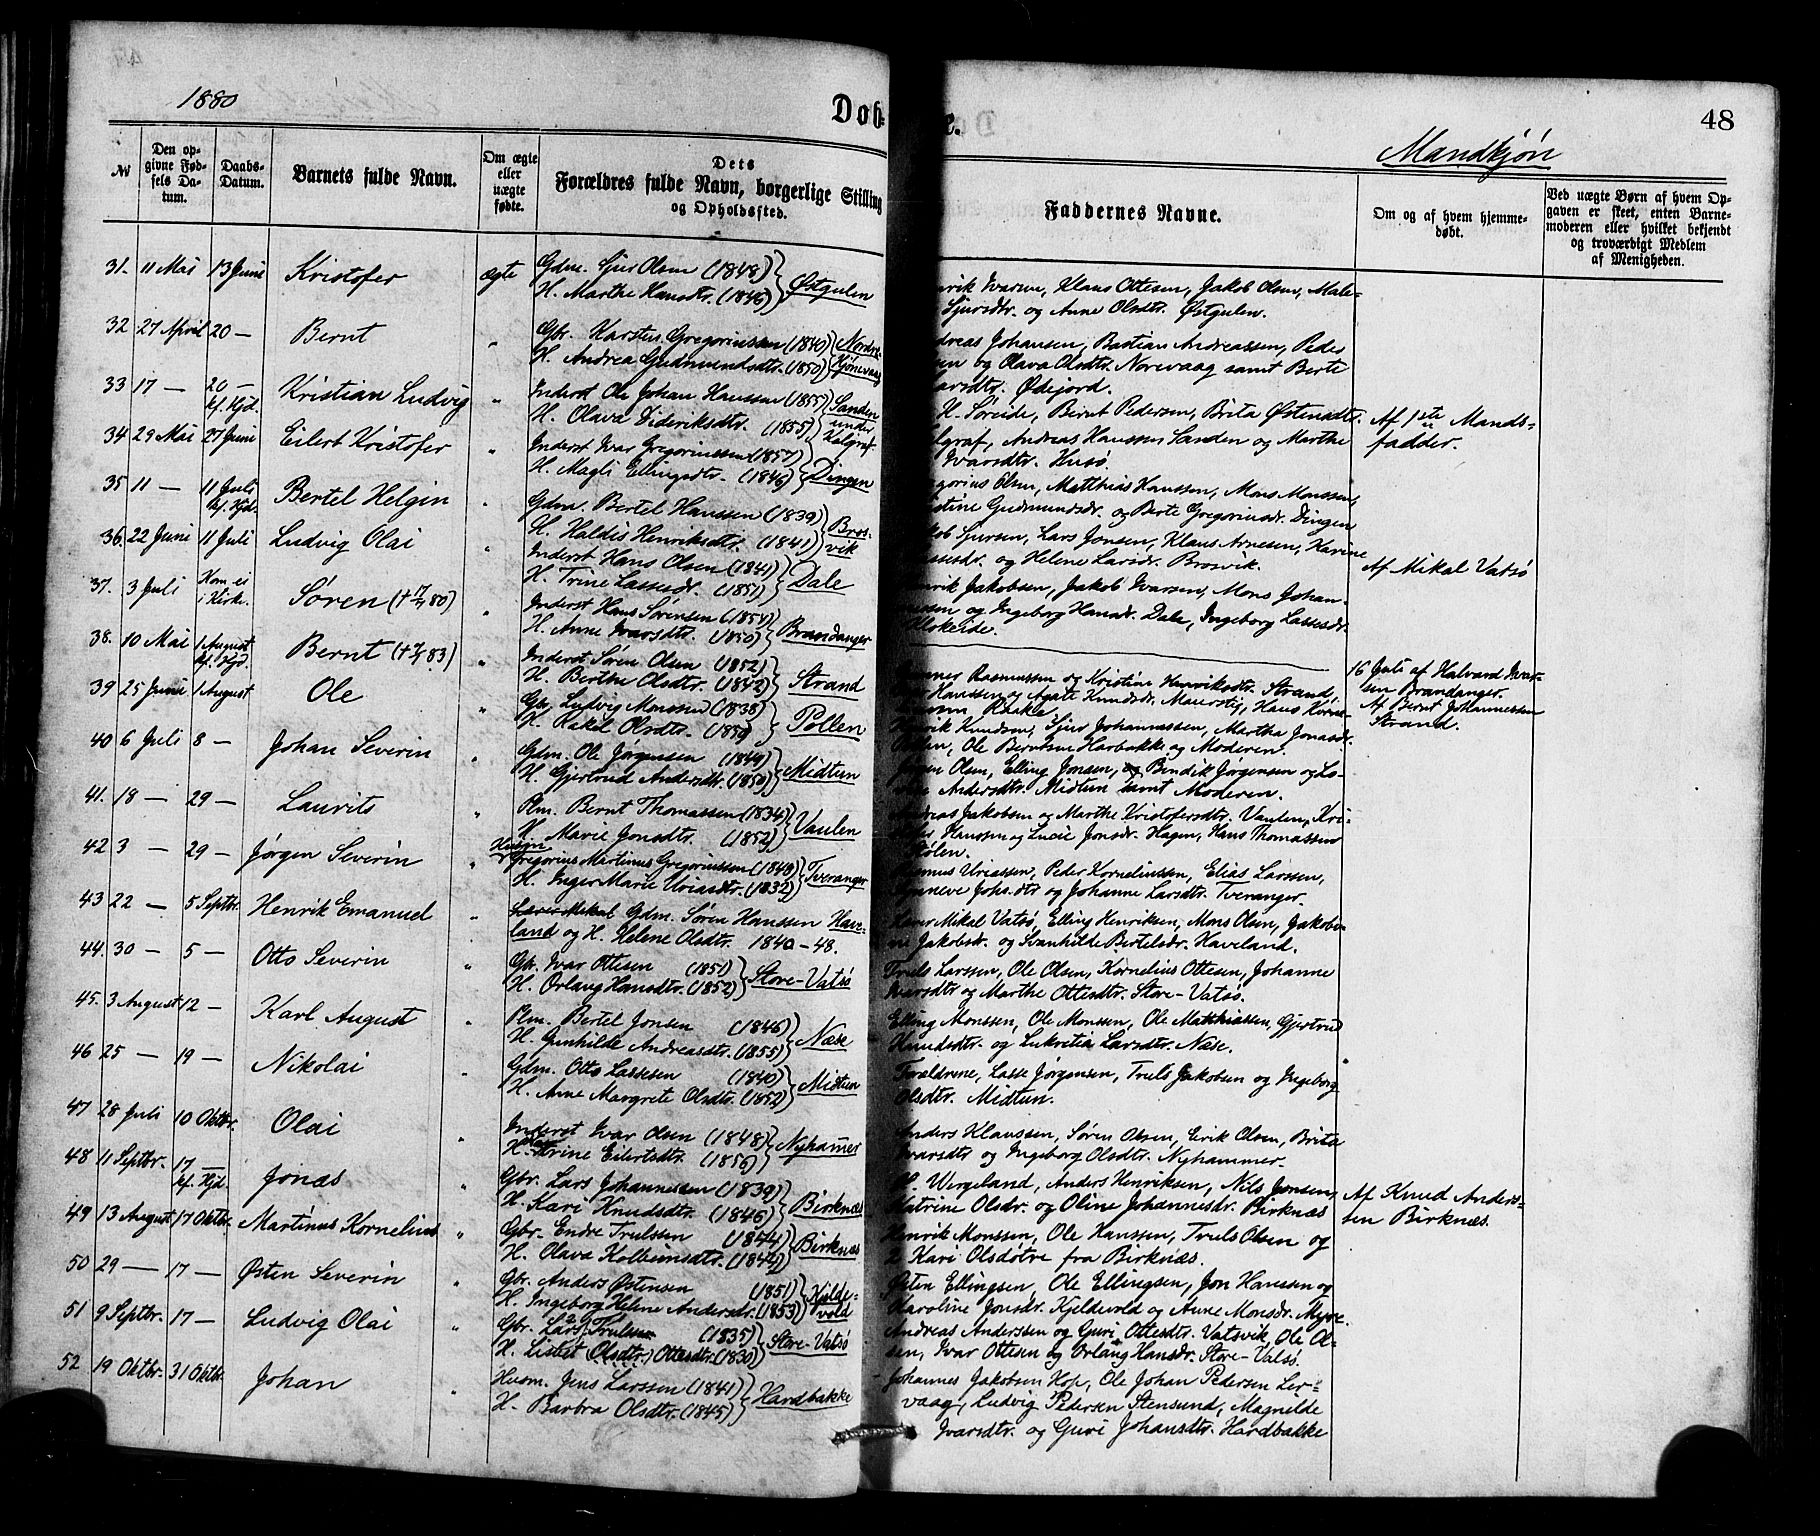 1880
Døb-
e.
48
Mandkjøn
№
Den op-
givne Fød-
sels Da-
tum.
Daabs-
Datum.
Barnets fulde Navn.
Om ægte
eller
uægte
fødte.
Dets
Forældres fulde Navn, borgerlige Stilling
og Opholdssted.
Faddernes Navne.
Om og af hvem hjemme-
døbt.
Ved uægte Børn af hvem Op-
gaven er skeet, enten Barne-
moderen eller hvilket bekjendt
og troværdigt Medlem
af Menigheden.
31. 11 Mai 13 Juni Kristofer ægte Gdm. Sjur Olsen (1848)
H. Marthe Hansdtr. (1846) Østgulen
Ivarsen, Klaus Ottesen, Jakob Olsen, Male-
Sjursdtr. og Anne Olsdtr. Østgulen.
32 27 April 20 — Bernt " Gbr. Karsten Gregoriussen (1840) Nordre
H. Andrea Gudmundsdtr. (1850) Hjønevaag
dreas Johansen, Bastian Andreassen, Peder
sen og Olava Olsdtr. Norevaag samt Berte
arsdtr. Ødejord.
33 17 — 20 —
kf. Hjd. Kristian Ludvig " Inderst Ole Johan Hanssen (1855) Sanden
H. Olava Dideriksdtr. (1855) under
Kalgraf
H. Søreide, Bernt Pedersen, Brita Østensdtr.
Kalgraf, Andreas Hanssen Sanden og Marthe
Ivarsdtr. Husø.
Af 1ste Mands-
fadder.
34 29 Mai 27 Juni Eilert Kristofer " Inderst Ivar Gregoriussen (1857)
H. Magli Ellingsdtr. (1846) Dingen
gorius Olsen, Matthias Hanssen, Mons Monssen,
istine Gudmundsdr. og Berte Gregoriusdr. Dingen
35 11 — 11 Juli
kf. Hjd. Bertel Helgin " Gdm. Bertel Hanssen (1839) Bros-
H. Haldis Henriksdtr. (1841) vik
kob Sjursen, Lars Jonsen, Klaus Arnesen, Karine
Lassesdr. og Helene Larsdr. Brosvik.
Af Mikal Vatsø
36. 22 Juni 11 Juli Ludvig Olai " Inderst Hans Olsen (1841)
H. Trine Lassesdr. (1851) Dale
enrik Jakobsen, Jakob Ivarsen, Mons Johan-
nessen og Ingeborg Hansdr. Dale, Ingeborg Lassesdr.
Klokeide.
37. 3 Juli Kom ei
i Kirke. Søren (+ 17/7 80) " Inderst Hans Sørensen (1854)
H. Anne Ivarsdtr. (1850) Brandanger
38. 10 Mai 1 August
kf. Hjd. Bernt (+ 7/7 83) " Inderst Søren Olsen (1852)
H. Berthe Olsdtr. (1842) Strand
Rasmussen og Kristine Henriksdtr. Strand,
Hanssen og Agate Knudsdr. Maurstig, Hans Korne-
Raake.
16 Juli af Halvard Ivar-
sen Brandanger.
Af Bernt Johannessen
Strand.
39 25 Juni 1 August Ole " Gbr. Ludvig Monssen (1838)
H. Rakel Olsdtr. (1850) Pollen
Henrik Knudsen, Sjur Johannassen, Martha Jonasdr.
Pollen, Ole Berntsen Harbakke og Moderen.
40 6 Juli 8 — Johan Severin " Gdm. Ole Jørgensen (1849)
H. Gjertrud Andersdtr. (1850) Midtun
Jørgen Olsen, Elling Jonsen, og Bendik Jørgensen og Lo-
Andersdtr. Midtun samt Moderen.
41. 18 — 29 — Laurits " Plm. Bernt Thomassen (1834)
H. Marie Jonsdtr. (1852) Vaulen
Andreas Jakobsen og Marthe Kristofersdtr. Vaulen, Kri-
Hanssen og Lucie Jonsdr. Hagen, Hans Thomassen
Stølen.
42 3 — 29 — Jørgen Severin " Husm
Gregorius Martinus Gregoriussen (1848)
H. Inger Marie Uriasdtr. (1832) Tveranger
Rasmus Uriassen, Peder Korneliussen, Elias Larssen,
Johs.dtr og Johanne Larsdtr. Tveranger.
43 22 — 5 Septbr. Henrik Emanuel " Lærer Mikal Gdm. Søren Hanssen Have-
land og H. Helene Olsdtr. 1840 – 48.
Lærer Mikal Vatsø, Elling Henriksen, Mons Olsen, Jakobi-
ne Jakobsdr. og Svanhilde Bertelsdr. Haveland.
44. 30 — 5 — Otto Severin " Gbr. Ivar Ottesen (1851)
H. Orlaug Hansdtr. (1852) Store-Vatsø
Truls Larssen, Ole Olsen, Kornelius Ottesen, Johanne
Ivarsdtr og Marthe Ottesdtr. Store-Vatsø.
45. 3 August 12 — Karl August " Plm. Bertel Jonsen (1846)
H. Gunhilde Andreasdtr. (1855) Næse
Elling Monssen, Ole Monssen, Ole Matthiassen, Gjertrud
Knudsdtr. og Lukretia Larsdtr. Næse.
46 25 — 19 — Nikolai " Gdm. Otto Lassesen (1840)
H. Anne Margrete Olsdtr. (1852) Midtun
Forældrene, Lasse Jørgensen, Truls Jakobsen og Ingeborg
Olsdtr. Midtun.
47 28 Juli 10 Oktbr. Olai " Inderst Ivar Olsen (1848)
H. Trine Eilertsdtr. (1856) Nyhamer
Anders Klaussen, Søren Olsen, Eirik Olsen, Brita
Ivarsdtr og Ingeborg Olsdtr. Nyhammer.
48 11 Septbr. 17 —
kf. Hjd. Jonas " Gbr. Lars Johannessen (1839)
H. Kari Knudsdtr. (1846) Birknæs
H. Vergeland, Anders Henriksen, Nils Jonsen,
Katrine Olsdr. og Oline Johannesdr. Birknæs
Af Knud Anders-
sen Birknæs.
49 13 August 17 Oktbr. Martinus Kornelius " Gbr. Endre Trulssen (1844)
H. Olava Kolbeinsdtr. (1844) Birknæs
Henrik Monssen, Ole Hanssen, Truls Olsen og
2 Kari Olsdøtre fra Birknæs.
50 29 — 17 — Østen Severin " Gbr. Anders Østensen (1851) Kjelde-
H. Ingeborg Helene Andersdr. (1853) vold
Østen Ellingsen, Ole Ellingsen, Jon Hanssen og
Karoline Jonsdr. Kjeldevold og Anne Monsdr. Myre.
51 9 Septbr. 17 — Ludvig Olai " Gbr. Lars Trulsen (1835)
H. Lisbet (Olsdtr.) Ottesdtr. (1830) Store-Vatsø
Andreas Anderssen og Guri Ottesdtr. Vatsvik, Ole Ol-
sen, Ivar Ottesen og Orlaug Hansdr. Store-Vatsø.
52 19 Oktbr. 31 Oktbr. Johan " Husm. Jens Larssen (1841)
H. Barbra Olsdtr. (1845) Hardbakke
Johannes Jakobsen Hop, Ole Johan Pedersen Ler-
vaag, Ludvig Pedersen Stensund, Magnilde
Ivarsdtr. og Guri Johansdtr. Hardbakke